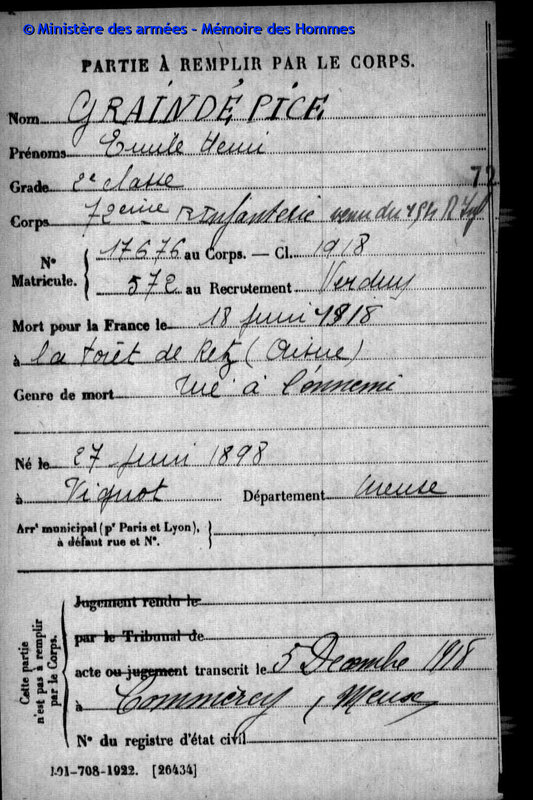 © Ministère des armées - Mémoire des Hommes
PARTIE À REMPLIR PAR LE CORPS.
Nom GRAINDÉPICE
Prénoms Emile Henri
Grade 2e classe
72
Corps 72ème R Infanterie venu du 154 R Inf
N° Matricule. 17676 au Corps. — Cl. 1918
572 au Recrutement Verdun
Mort pour la France le 18 Juin 1918
à la forêt de Retz (Aisne)
Genre de mort Tué à l'ennemi
Né le 27 Juin 1898
à Vignot Département Meuse
Arrt municipal (pr Paris et Lyon),
à défaut rue et N°.
Cette partie n'est pas à remplir par le Corps.
Jugement rendu le
par le Tribunal de
acte ou jugement transcrit le 5 Décembre 1918
à Commercy, Meuse
N° du registre d'état civil
101-708-1922. [26434]